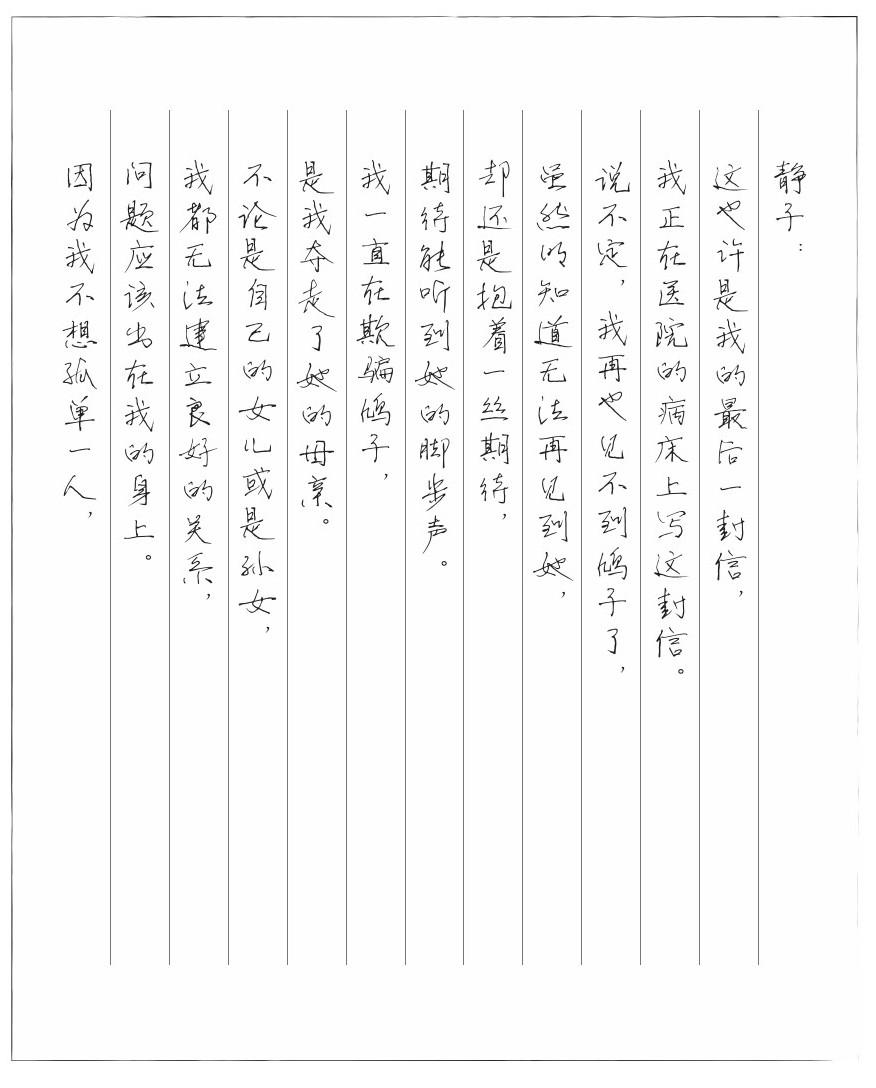 静子：
这也许是我的最后一封信，
我正在医院的病床上写这封信。
说不定，我再也见不到鸠子了，
虽然明知道无法再见到她，
却还是抱着一丝期待，
期待能听到她的脚步声。
我一直在欺骗鸠子，
是我夺走了她的母亲。
不论是自己的女儿或是孙女，
我都无法建立良好的关系，
问题应该出在我的身上。
因为我不想孤单一人，